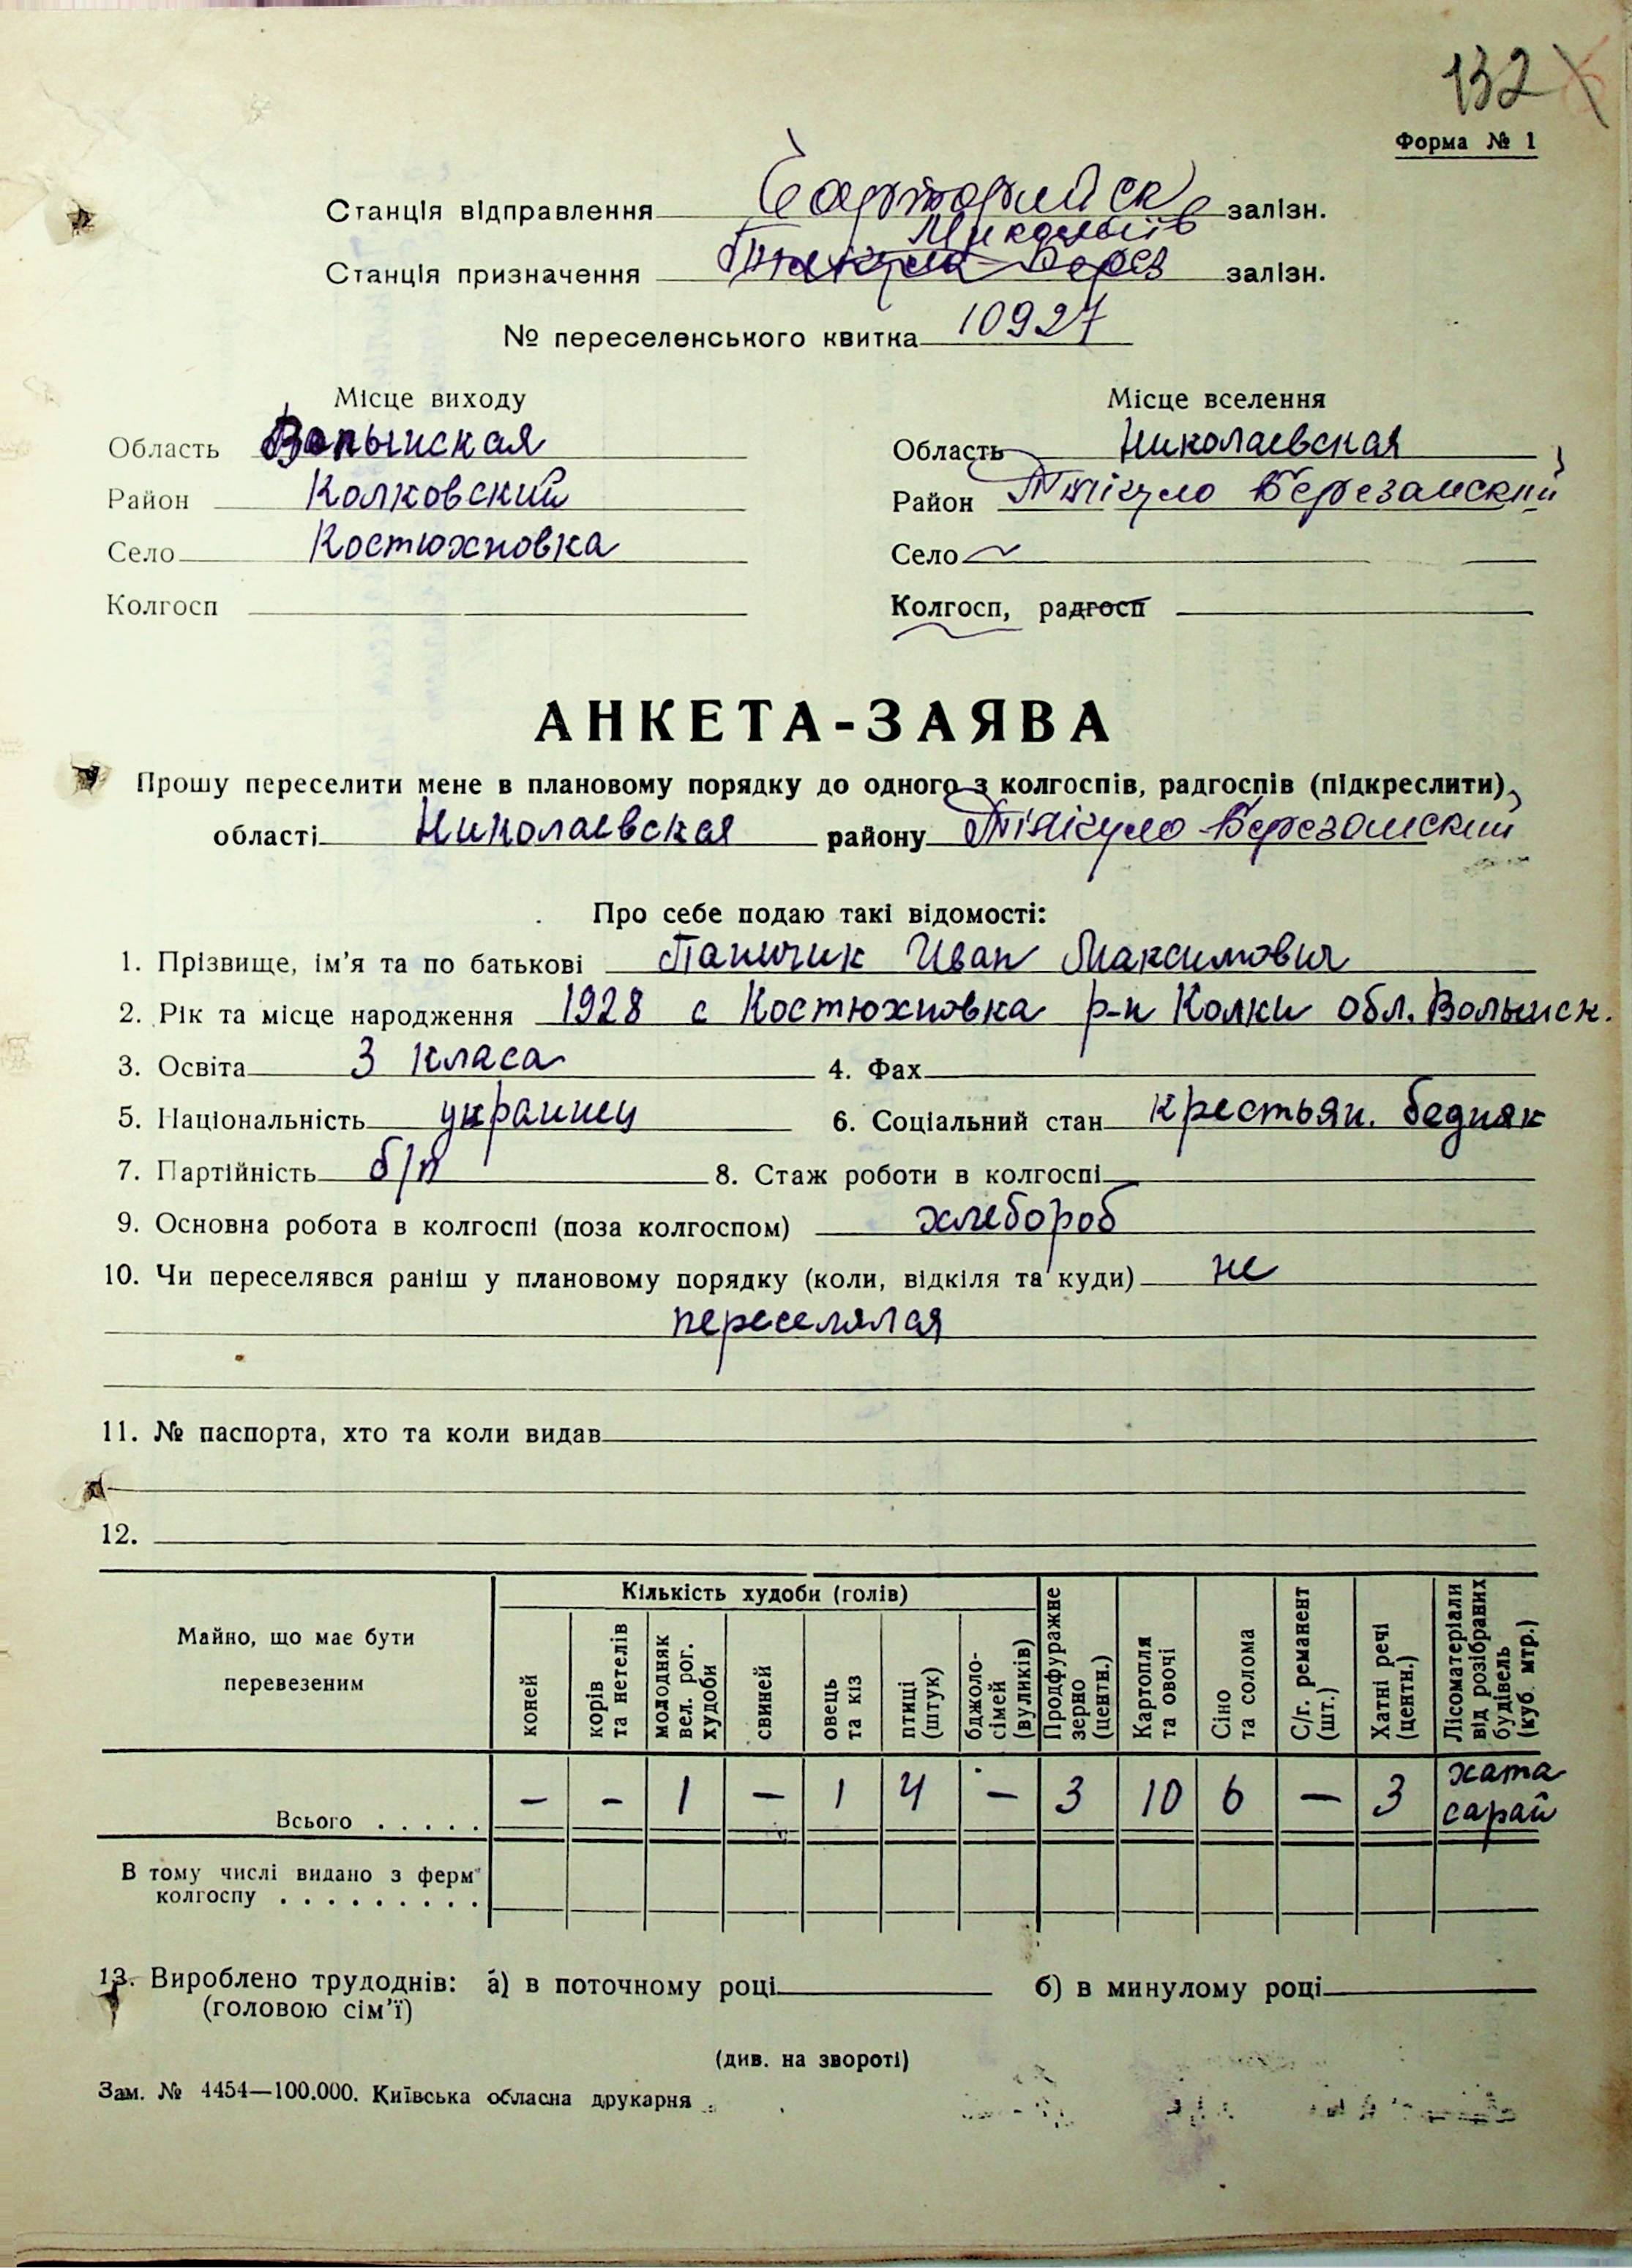 132
Форма № 1
Станція відправлення Чарторийск залізн.
Миколаїв
Станція призначення залізн.
№ переселенського квитка 10927
Місце виходу Місце вселення
Область Волынская Область Николаевская
Район Колковский Район Тилігуло Березанский
Село Костюхновка Село
Колгосп Колгосп, радгосп
АНКЕТА-ЗАЯВА
Прошу переселити мене в плановому порядку до одного з колгоспів, радгоспів (підкреслити)
області Николаевская району Тилігуло Березанский
Про себе подаю такі відомості:
1. Прізвище, ім'я та по батькові Паничик Иван Максимович
2. Рік та місце народження 1928 с Костюхновка р-н Колки обл. Волынск.
3. Освіта 3 класа 4. Фах
5. Національність украинец 6. Соціальний стан крестьян. бедняк
7. Партійність б/п 8. Стаж роботи в колгоспі
9. Основна робота в колгоспі (поза колгоспом) хлебороб
10. Чи переселявся раніш у плановому порядку (коли, відкіля та куди) не
переселялся
11. № паспорта, хто та коли видав
12.
Майно, що має бути перевезеним
Кількість худоби (голів)
коней
корів та нетелів
молодняк вел. рог. худоби
свиней
овець та кіз
птиці (штук)
бджоло-сімей (вуликів)
Продфуражне зерно (центн.)
Картопля та овочі
Сіно та солома
С/г. реманент (шт.)
Хатні речі (центн.)
Лісоматеріали від розібраних будівель (куб. мтр.)
Всього . . . . . – – 1 – 1 4 – 3 10 6 – 3 хата сарай
В тому числі видано з ферм
колгоспу . . . . . . . . .
13. Вироблено трудоднів: а) в поточному році б) в минулому році
(головою сім'ї)
(див. на звороті)
Зам. № 4454—100.000. Київська обласна друкарня